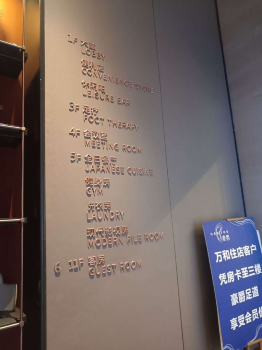 1F 大堂
LOBBY
便利店
CONVENIENCE STORE
休闲吧
LEISURE BAR
3F 足疗
FOOT THERAPY
4F 会议室
MEETING ROOM
5F
JAPANESE CUISINE
健身房
GYM
洗衣房
LAUNDRY
MODERN FILE ROOM
6 11F 客房
GUEST ROOM
万和住店客户
凭房卡至三楼
豪爵足道
享受会员价